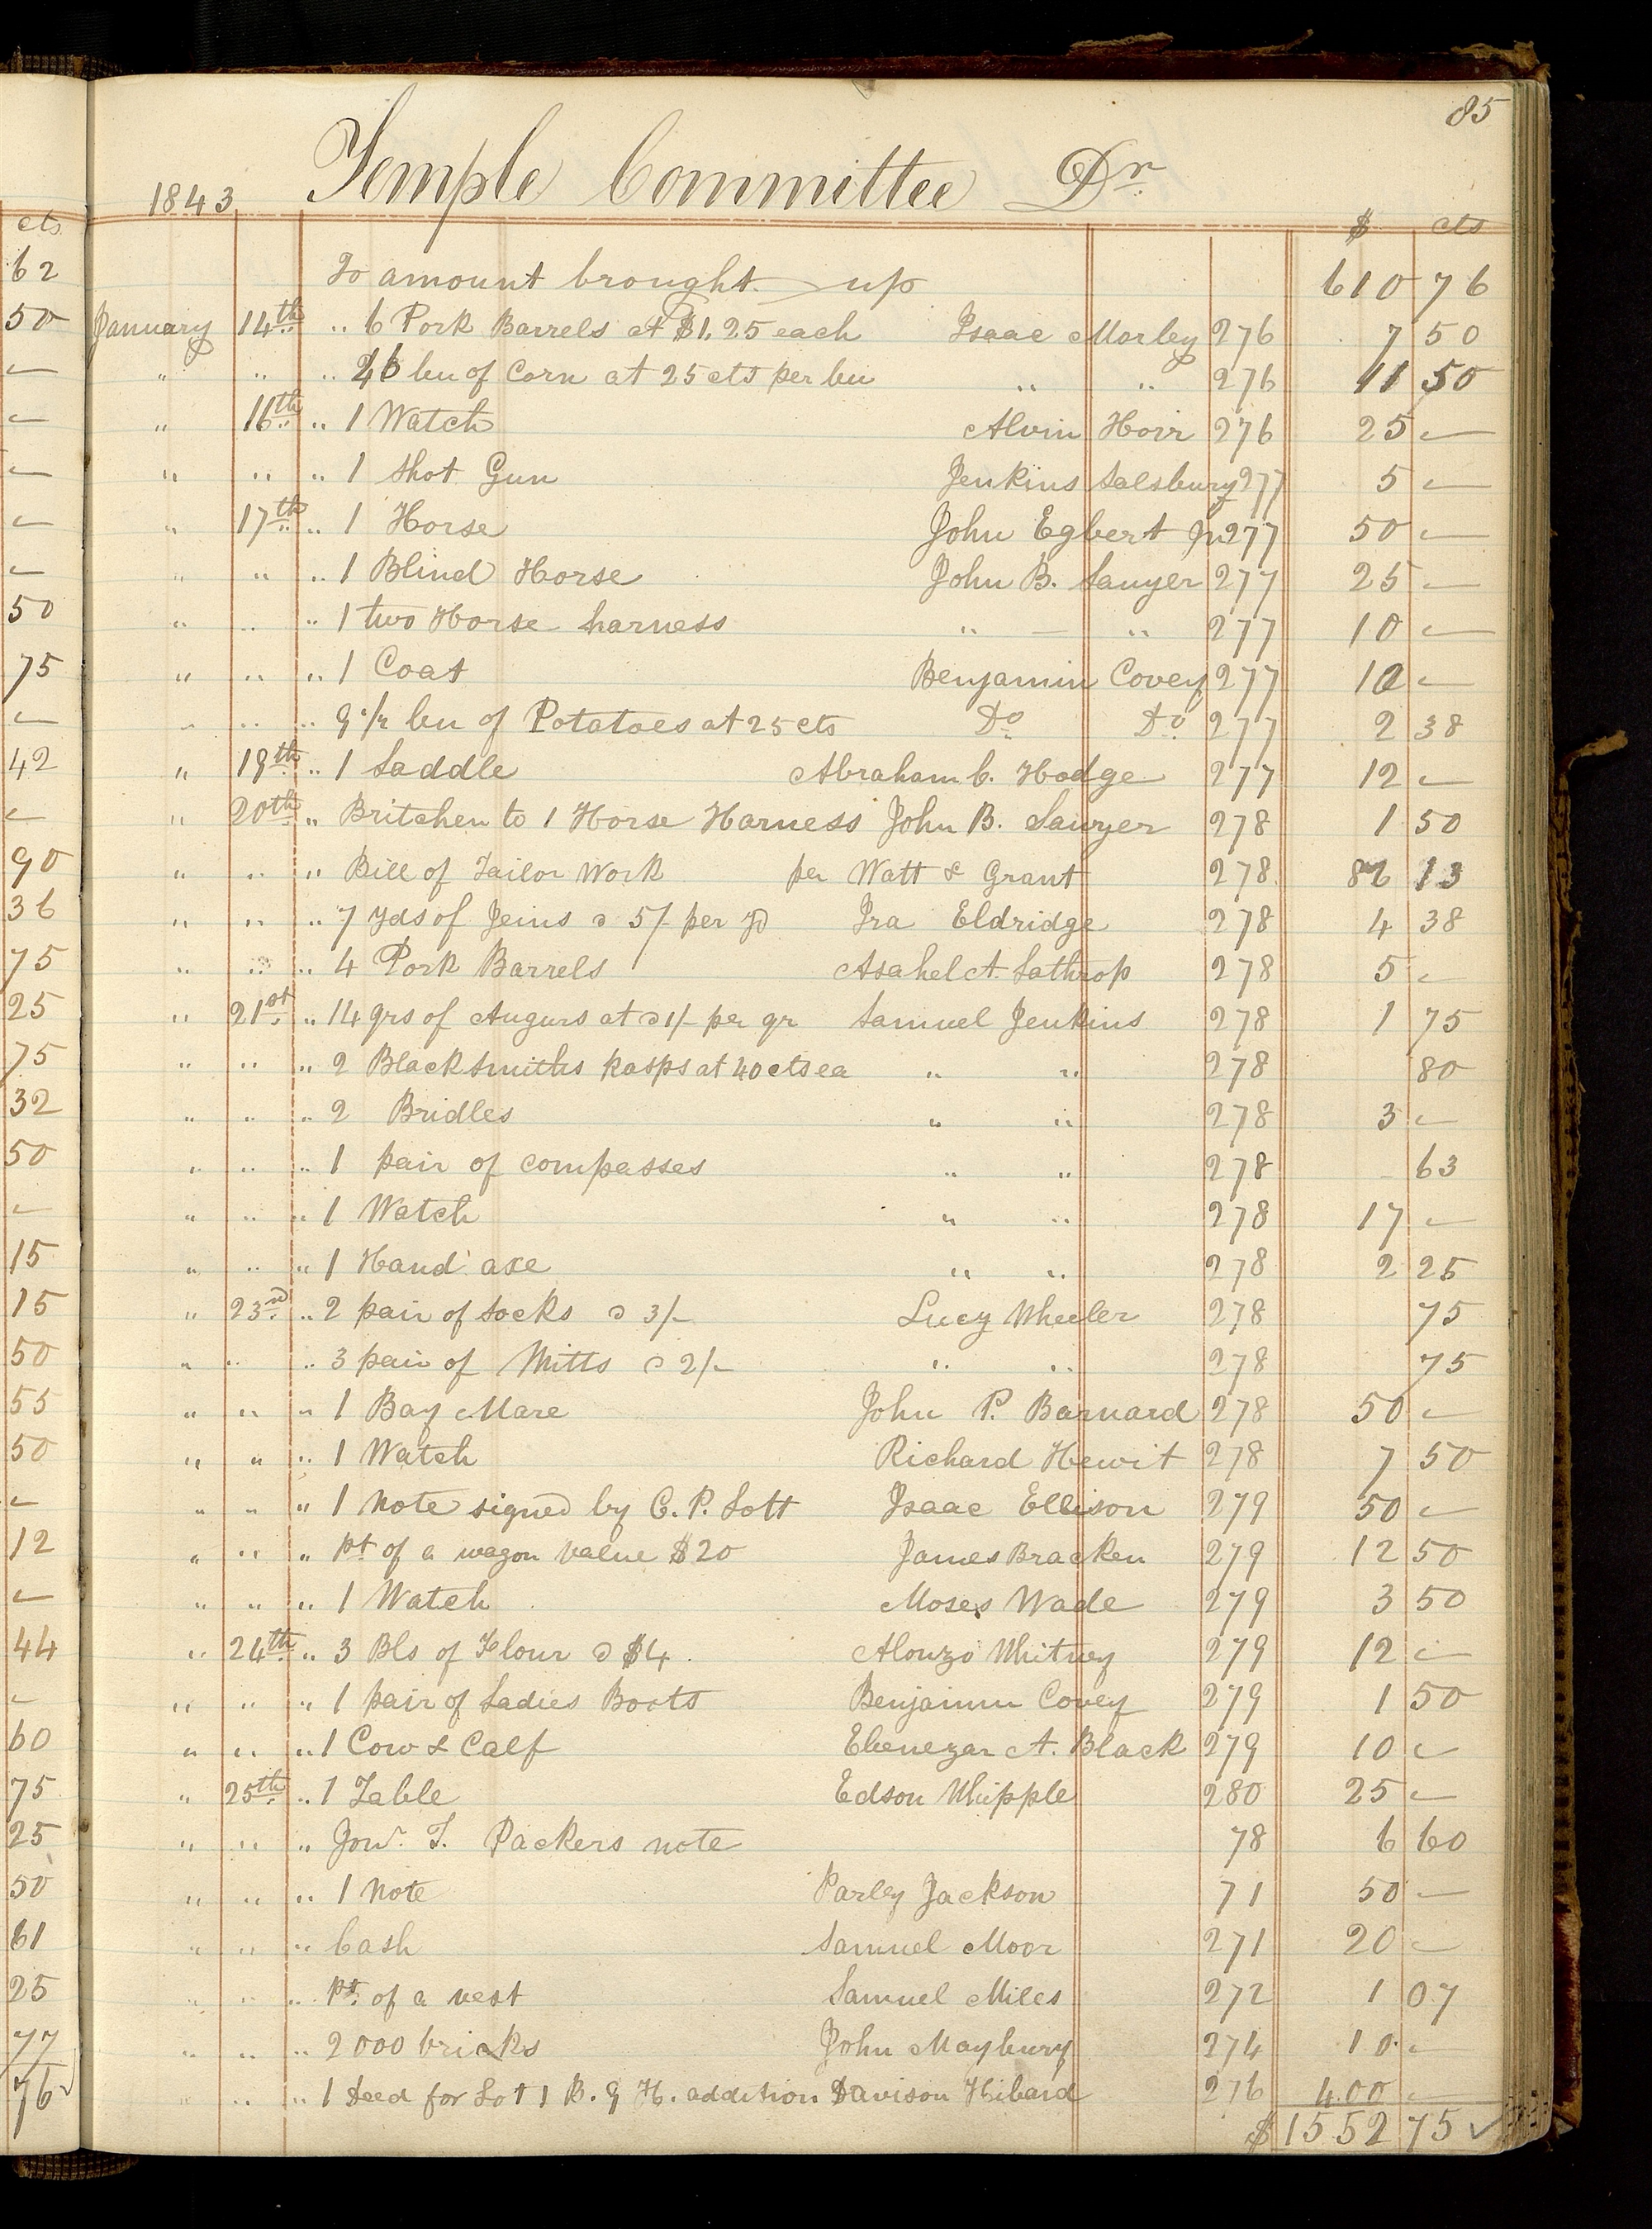 85
1843 Temple Committee Dr
$ cts
To amount brought up 610 76
January 14th " 6 Pork Barrels at $1.25 each Isaac Morley 276 7 50
" " " 46 bu of Corn at 25 cts per bu " " 276 11 50
" 16th " 1 Watch Alvin Horr 276 25 —
" " " 1 Shot Gun Jenkins Salsbury 277 5 —
" 17th " 1 Horse John Egbert Jr 277 50 —
" " " 1 Blind Horse John B. Sawyer 277 25 —
" " " 1 two Horse harness " — " 277 10 —
" " " 1 Coat Benjamin Covey 277 10 —
" " " 9 1/2 bu of Potatoes at 25 cts Do Do 277 2 38
" 19th " 1 Saddle Abraham C. Hodge 277 12 —
" 20th " Britchen to 1 Horse Harness John B. Sawyer 278 1 50
" " " Bill of Tailor Work per Watt & Grant 278 86 13
" " " 7 yds of Jeins @ 5/- per yd Ira Eldridge 278 4 38
" " " 4 Pork Barrels Asahel A. Lathrop 278 5 —
" 21st " 14 qrs of Augurs at @ 1/- per qr Samuel Jenkins 278 1 75
" " " 2 Blacksmiths Rasps at 40 cts ea " " 278 80
" " " 2 Bridles " " 278 3 —
" " " 1 pair of compasses " " 278 63
" " " 1 Watch " " 278 17 —
" " " 1 Hand axe " " 278 2 25
" 23rd " 2 pair of Socks @ 3/- Lucy Wheeler 278 75
" " " 3 pair of Mitts @ 2/- " " 278 75
" " " 1 Bay Mare John P. Barnard 278 50 —
" " " 1 Watch Richard Hewit 278 7 50
" " " 1 Note signed by C. P. Lott Isaac Ellison 279 50 —
" " " Pt of a wagon value $20 James Bracken 279 12 50
" " " 1 Watch Moses Wade 279 3 50
" 24th " 3 Bls of Flour @ $4 Alonzo Whitney 279 12 —
" " " 1 pair of Ladies Boots Benjamin Covey 279 1 50
" " " 1 Cow & Calf Ebenezar A. Black 279 10 —
" 25th " 1 Table Edson Whipple 280 25 —
" " " T. Packers note 78 6 60
" " " 1 Note Parley Jackson 71 50 —
" " " Cash Samuel Moor 271 20 —
" " " Pt. of a vest Samuel Miles 272 1 07
" " " 2000 bricks John Maybury 274 10 —
" " " 1 Deed for Lot 1 B. 9 H. addition Davison Hibard 276 400 —
$ 1552 75 ✓
cts
62
50
—
—
—
—
—
50
75
—
42
—
90
36
75
25
75
32
50
—
15
15
50
55
50
—
12
—
44
—
60
75
25
50
61
25
77
76 ✓